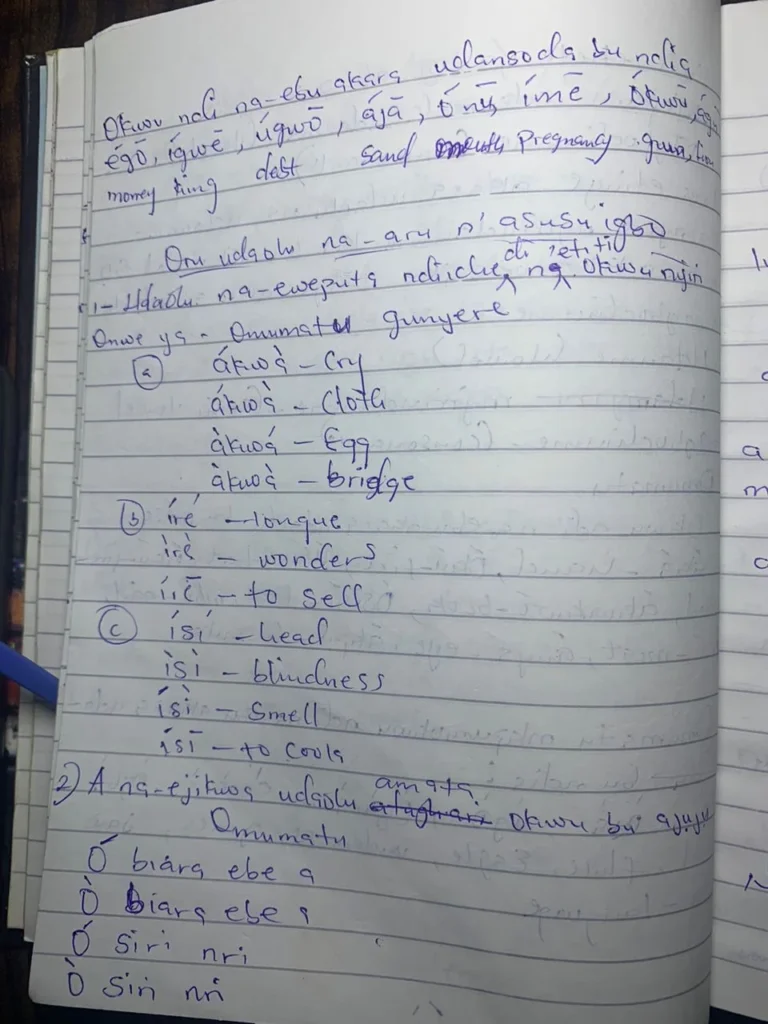 Okwu ndi na-ebu akara udansoda bu ndia
égō, ígwē, úgwō, ájā, ó nụ̄ ímē, ókwū,
money king debt sand mouth, pregnancy
Oru udaolu na-aru n' asusu igbo
1- Udaolu na-eweputa ndiiche di iche na etiti okwu nyiri
Onwe ya - Omumatu gunyere
(a) ákwá - Cry
ákwà - Cloth
àkwá - Egg
àkwà - bridge
(b) íré - tongue
ìrè - wonders
írē - to sell
(c) ísí - head
ìsì - blindness
ísì - Smell
ísī - to cook
2) A na-ejikwa udaolu amata okwu bu ajuju
Omumatu
Ó biára ebe a
Ò biara ebe a
Ó siri nri
Ò siri nri